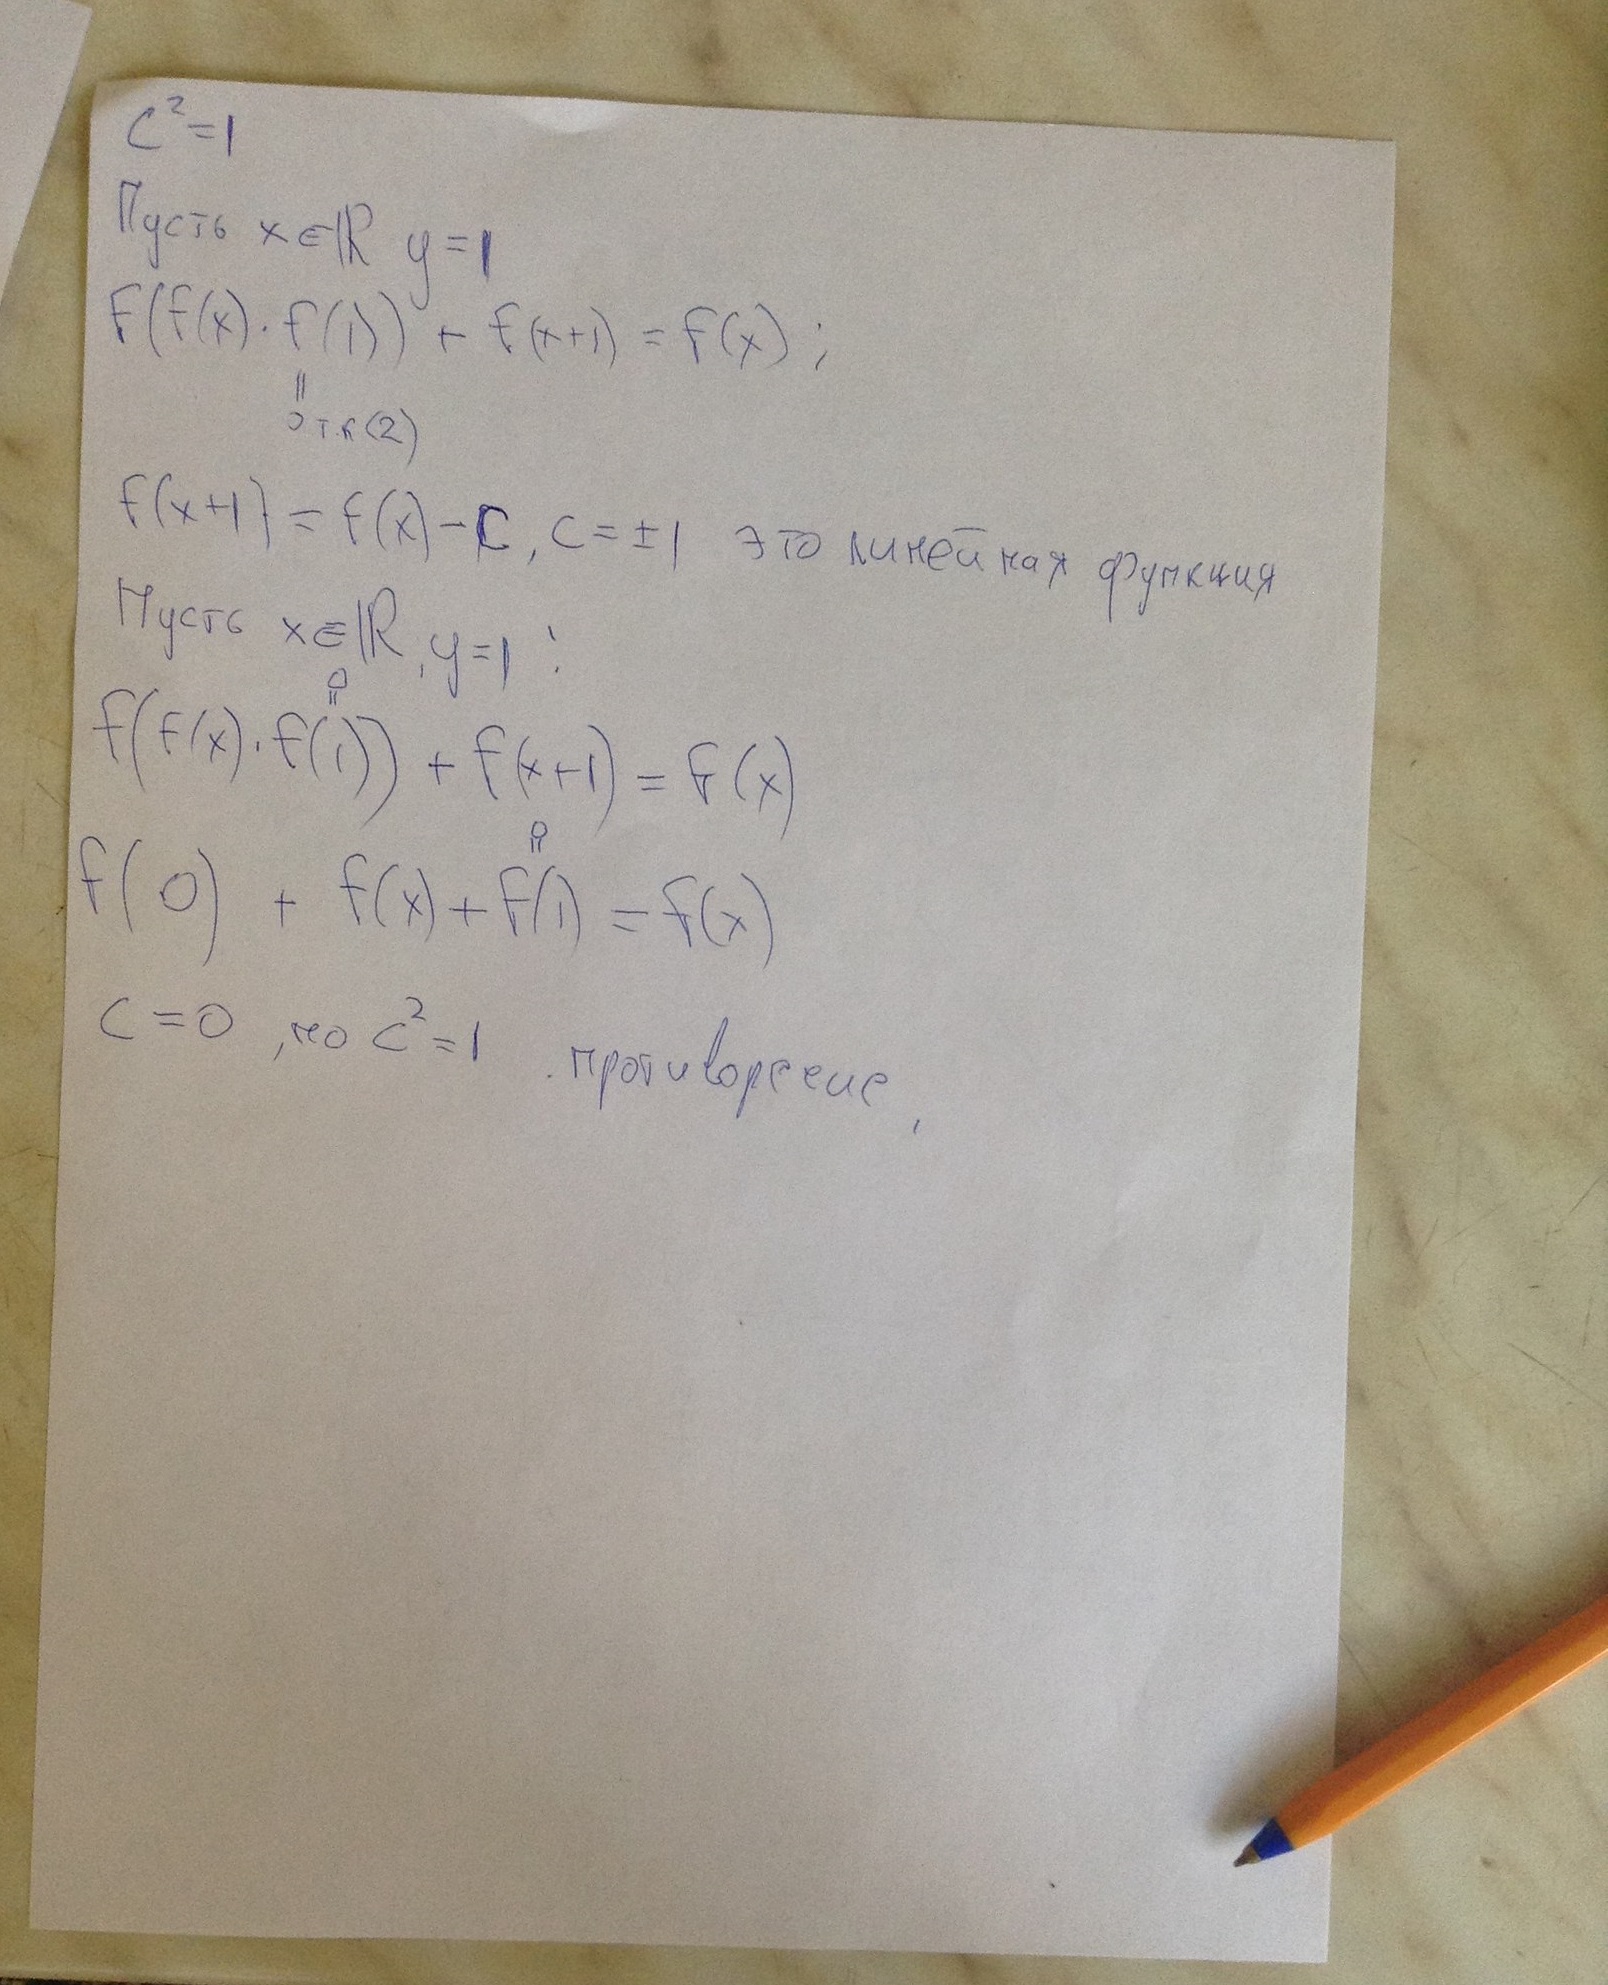 C² = 1
Пусть x∈ℝ y=1
f(f(x)·f(1)) + f(x+1) = f(x);
॥
0 т.к (2)
f(x+1) = f(x) - C, C = ±1 это линейная функция
Пусть x∈ℝ, y=1:
0
॥
f(f(x)·f(1)) + f(x+1) = f(x)
0
॥
f(0) + f(x) + f(1) = f(x)
C = 0, но C² = 1 противоречие,